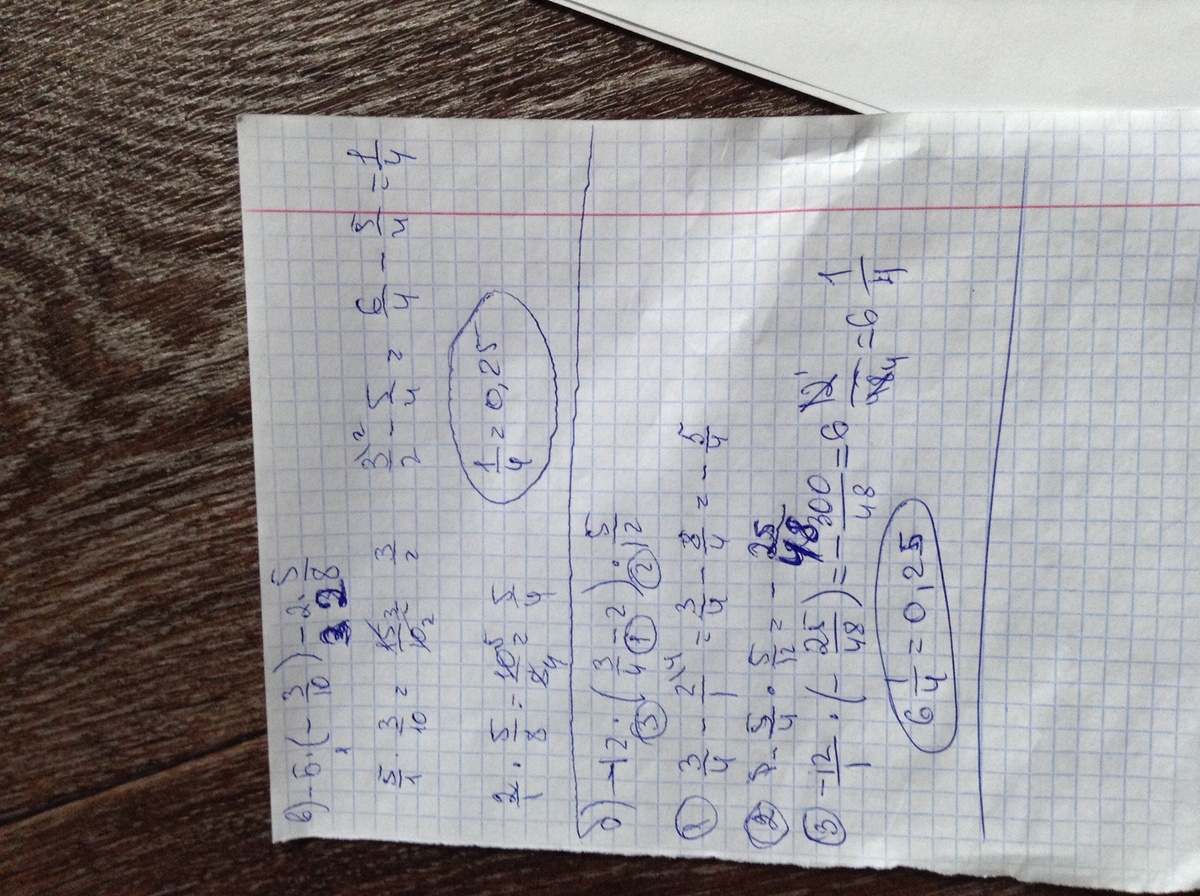 в) -5·(-3/10) - 2·5/8
5/1 · 3/10 = 15/10 3/2 3/2 - 5/4 = 6/4 - 5/4 = 1/4
2/1 · 5/8 = 10/8 5/4 = 5/4
1/4 = 0,25
б) -12·(3/4 - 2)·5/12
③ ① ②
① 3/4 - 2/1 = 3/4 - 8/4 = -5/4
② -5/4 · 5/12 = -25/48
③ -12/1 · (-25/48) = -300/48 = 6 12/48 = 6 1/4
6 1/4 = 0,25